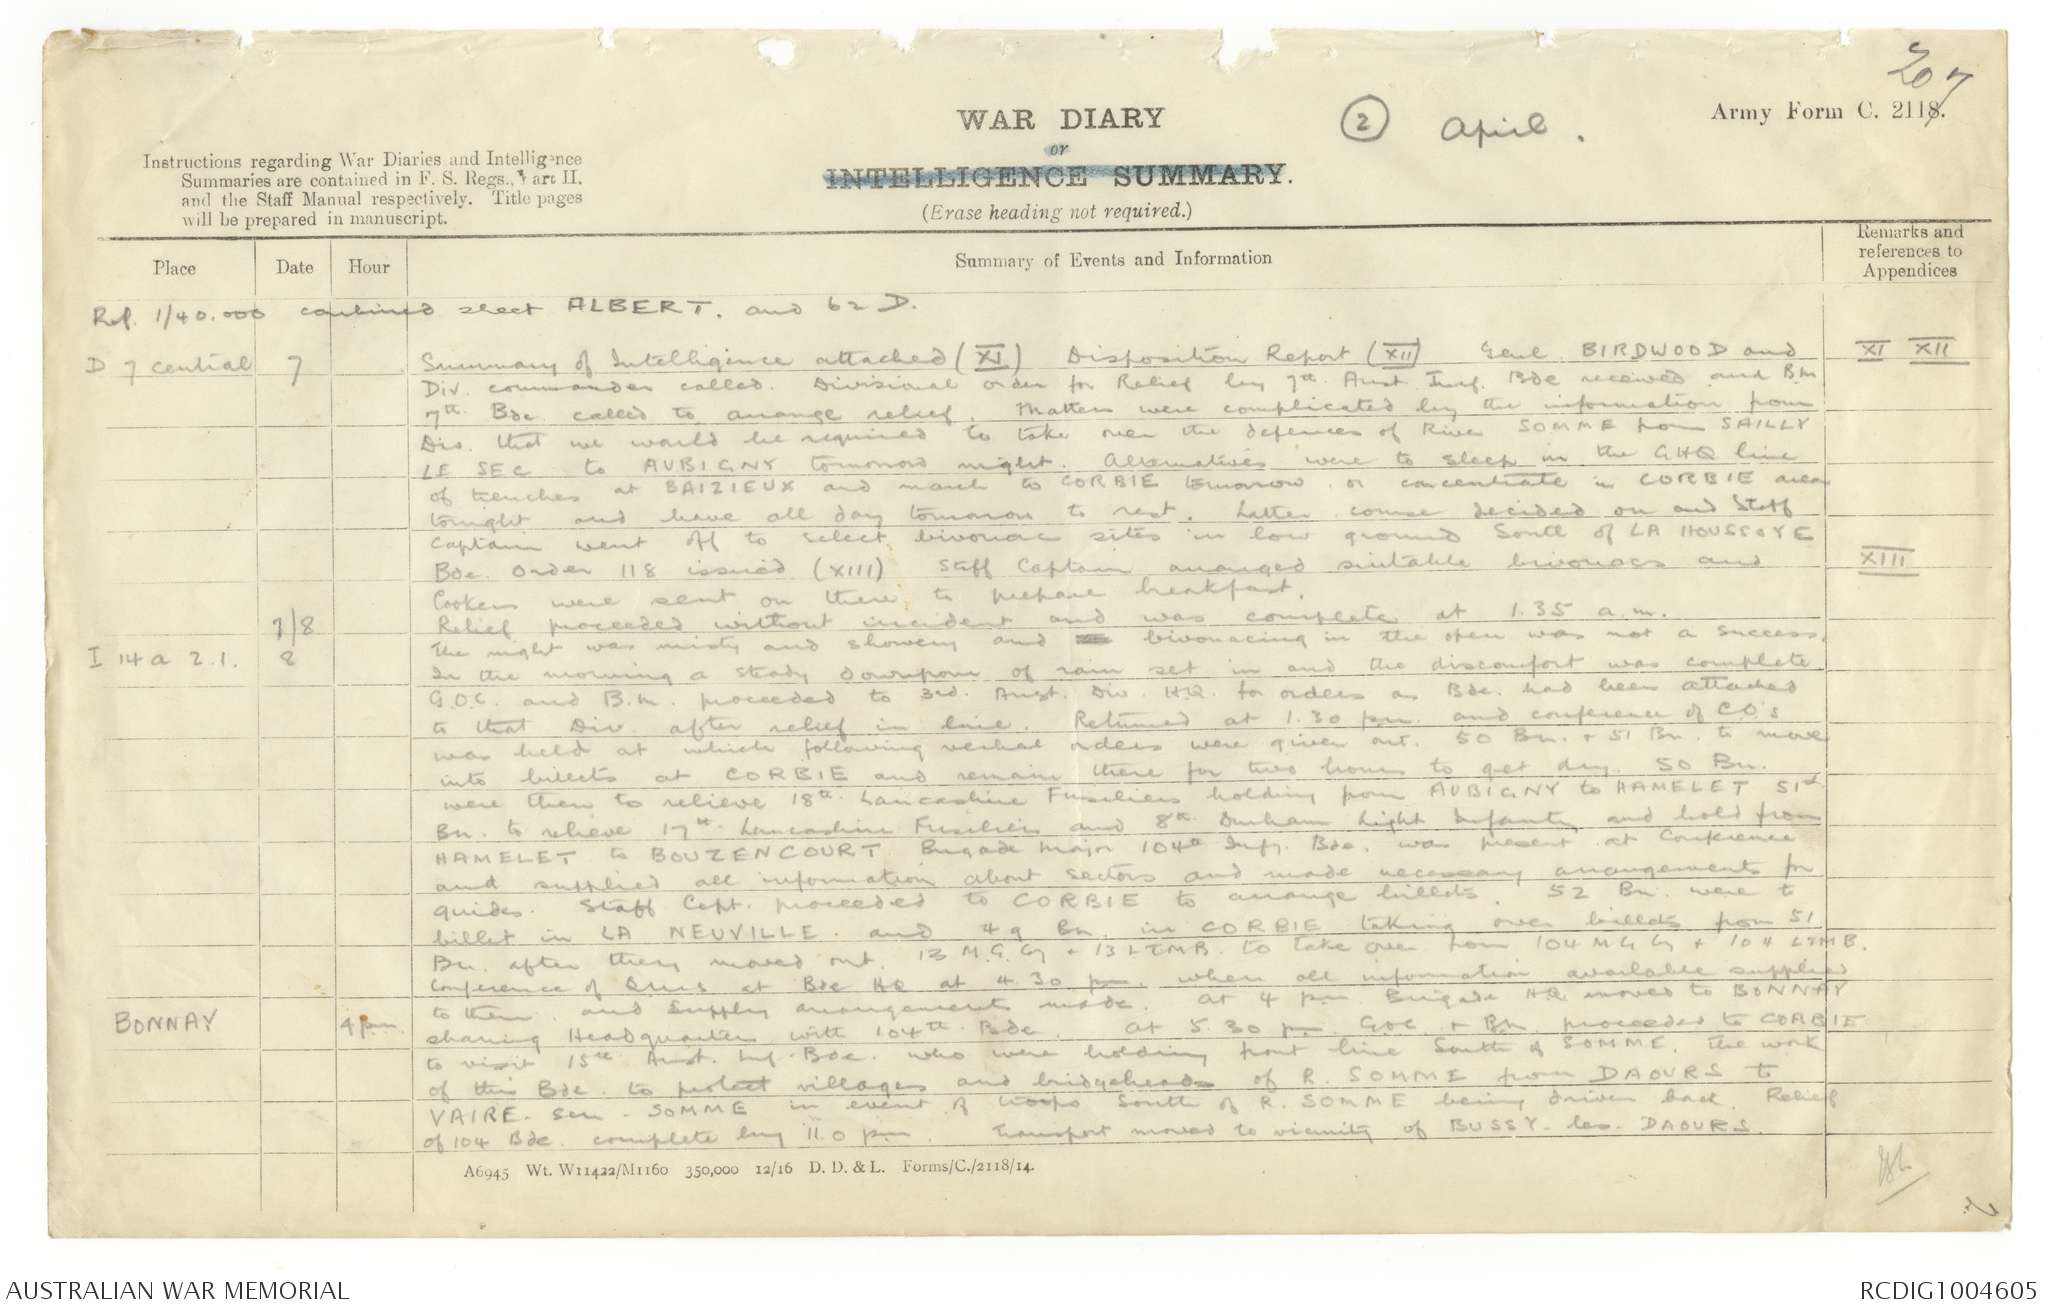 207
Army Form C. 2118.
WAR DIARY
or
INTELLIGENCE SUMMARY.
(Erase heading not required.)
2 April.
Instructions regarding War Diaries and Intelligence
Summaries are contained in F. S. Regs., Part II.
and the Staff Manual respectively. Title pages
will be prepared in manuscript.
Place Date Hour Summary of Events and Information Remarks and references to Appendices
Ref. 1/40.000 combined sheet ALBERT. and 62 D.
D 7 central 7 Summary of Intelligence attached (XI) Disposition Report (XII) Genl BIRDWOOD and XI XII
Div. commander called. Divisional order for Relief by 7th Aust. Inf. Bde received and B.M
7th Bde. called to arrange relief. Matters were complicated by the information from
Div. that we would be required to take over the defences of River SOMME from SAILLY
LE SEC to AUBIGNY tomorrow night. Alternatives were to sleep in the GHQ line
of trenches at BAIZIEUX and march to CORBIE tomorrow or concentrate in CORBIE area
tonight and have all day tomorrow to rest. Latter course decided on and Staff
Captain went off to select bivouac sites in low ground South of LA HOUSSOYE
Bde. Order 118 issued (XIII) Staff Captain arranged suitable bivouacs and XIII
Cookers were sent on there to prepare breakfast.
7/8 Relief proceeded without incident and was complete at 1.35 a.m.
I 14 a 2.1. 8 The night was misty and showery and bivouacing in the open was not a success.
In the morning a steady downpour of rain set in and the discomfort was complete
G.O.C. and B.M. proceeded to 3rd. Aust. Div. HQ. for orders as Bde. had been attached
to that Div. after relief in line. Returned at 1.30 pm. and conference of C.O's
was held at which following verbal orders were given out. 50 Bn. + 51 Bn. to move
into billets at CORBIE and remain there for two hours to get dry. 50 Bn.
were then to relieve 18th Lancashire Fusiliers holding from AUBIGNY to HAMELET 51st
Bn. to relieve 17th Lancashire Fusiliers and 8th Durham Light Infantry and hold from
HAMELET to BOUZENCOURT Brigade Major 104th Infy. Bde. was present at Conference
and supplied all information about sectors and made necessary arrangements for
guides. Staff Capt. proceeded to CORBIE to arrange billets. 52 Bn. were to
billet in LA NEUVILLE and 49 Bn. in CORBIE taking over billets from 51
Bn. after they moved out. 13 M.G. Cy + 13 LTMB. to take over from 104 M G Cy + 104 LTMB.
Conference of Qrms at Bde HQ at 4.30 pm. when all information available supplied
to them and supply arrangements made. At 4 pm Brigade HQ moved to BONNAY
BONNAY 4 pm. sharing Headquarters with 104th Bde. At 5.30 pm GOC + Bm. proceeded to CORBIE
to visit 15th Aust. Inf. Bde. who were holding front line South of SOMME. The work
of this Bde. to protect villages and bridgeheads of R. SOMME from DAOURS to
VAIRE. sous - SOMME in event of troops South of R. SOMME being driven back. Relief
of 104 Bde. complete by 11.0 pm. Transport moved to vicinity of BUSSY. les. DAOURS.
A6945 Wt. W11422/M1160 350,000 12/16 D. D. & L. Forms/C./2118/14.
AUSTRALIAN WAR MEMORIAL
RCDIG1004605